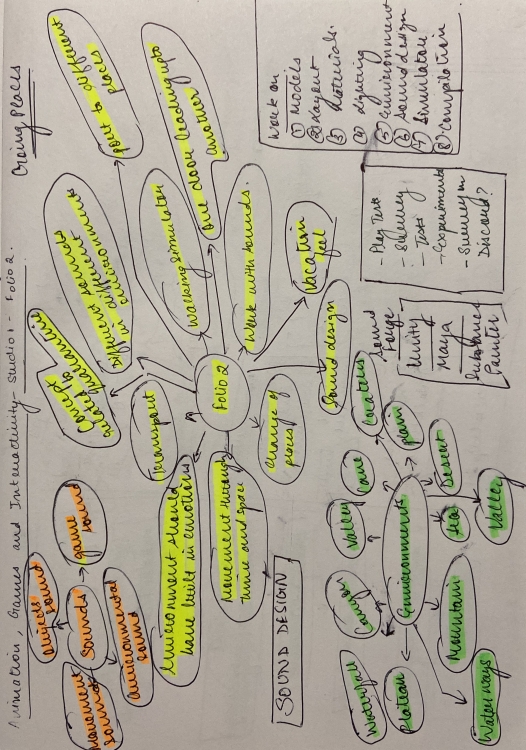 Animation, Games and Interactivity - Studio 1 - Folio 2.
Going Places
Folio 2
Transport
Different sounds
in different
environments
Walking simulator
port to different
places
One door leading upto
another
Work with sounds.
Vacation
feel
Sound design
Change of
places
Movement through
time and space
Environment should
have built in emotions
SOUND DESIGN
Sounds
game
sound
environmental
sound
Movement
sounds
Work on
① Models
② Layout
③ Materials.
④ Lighting
⑤ Environment
⑥ Sound design
⑦ Simulation
⑧ Compilation
- Play Test
- Survey
- Tests
- Experiments
- Survey on
Discord?
Sound
Forge
Unity
Maya
Substance
Painter
Environments
Waterfall
Plateau
Canyon
Valley
Cave
Craters
plain
Desert
Sea
Valley
Mountain
Waterways